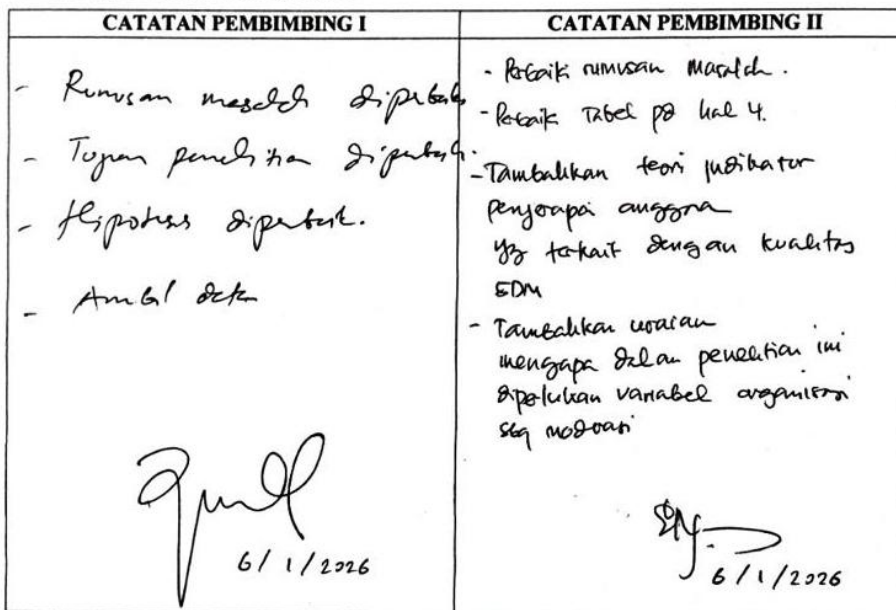 CATATAN PEMBIMBING I
- Rumusan masalah diperbaiki
- Tujuan penelitian diperbaiki.
- Hipotesis diperbaik.
- Ambil data
6/1/2026
CATATAN PEMBIMBING II
- Perbaiki rumusan masalah.
- Perbaik Tabel pd hal 4.
- Tambahkan teori indikator
penyerapa anggara
yg terkait dengan kualitas
SDM
- Tambahkan uraian
mengapa dalam penelitian ini
diperlukan variabel organisasi
sbg moderasi
6/1/2026